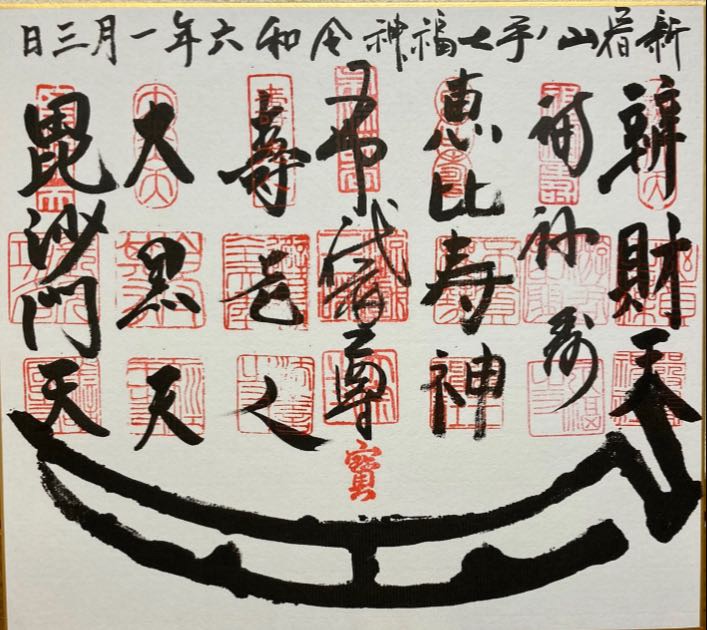 新宿山ノ手七福神 令和六年一月三日
辨財天
福禄寿
恵比寿神
布袋尊
壽老人
大黒天
毘沙門天
寶